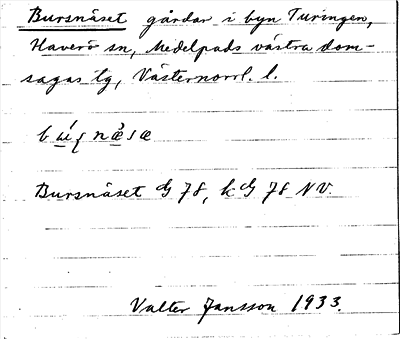 Bursnäset gårdar i byn Turingen,
Haverö sn, Medelpads västra dom-
sagas tg, Västernorrl. l.
Bursnäset G 78, k G 78 NV.
Valter Jansson 1933.